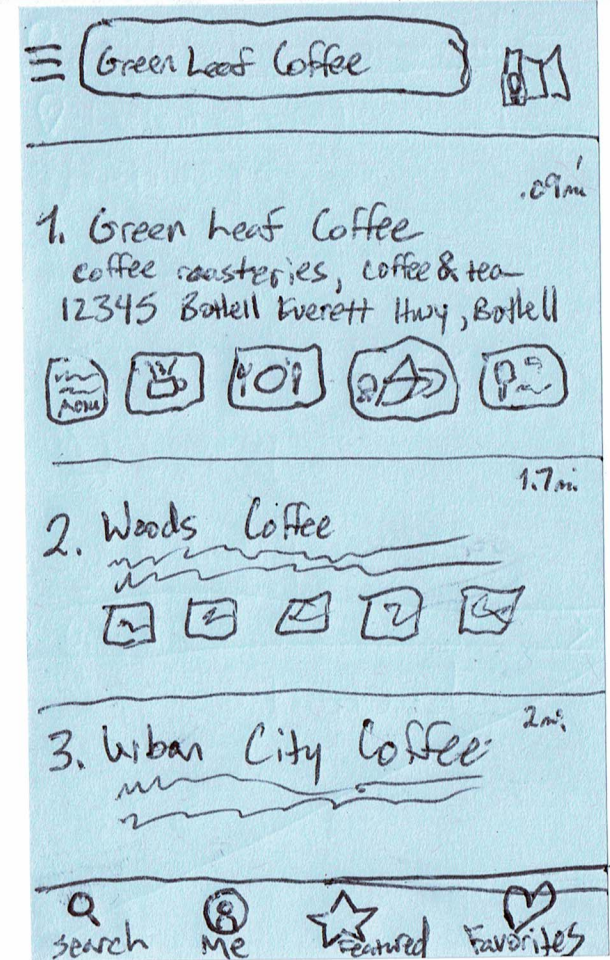 Green Leaf Coffee
.09mi
1. Green Leaf Coffee
coffee roasteries, coffee & tea
12345 Bothell Everett Hwy, Bothell
menu
1.7mi
2. Woods Coffee
2mi
3. Urban City Coffee
Search
Me
Featured
Favorites